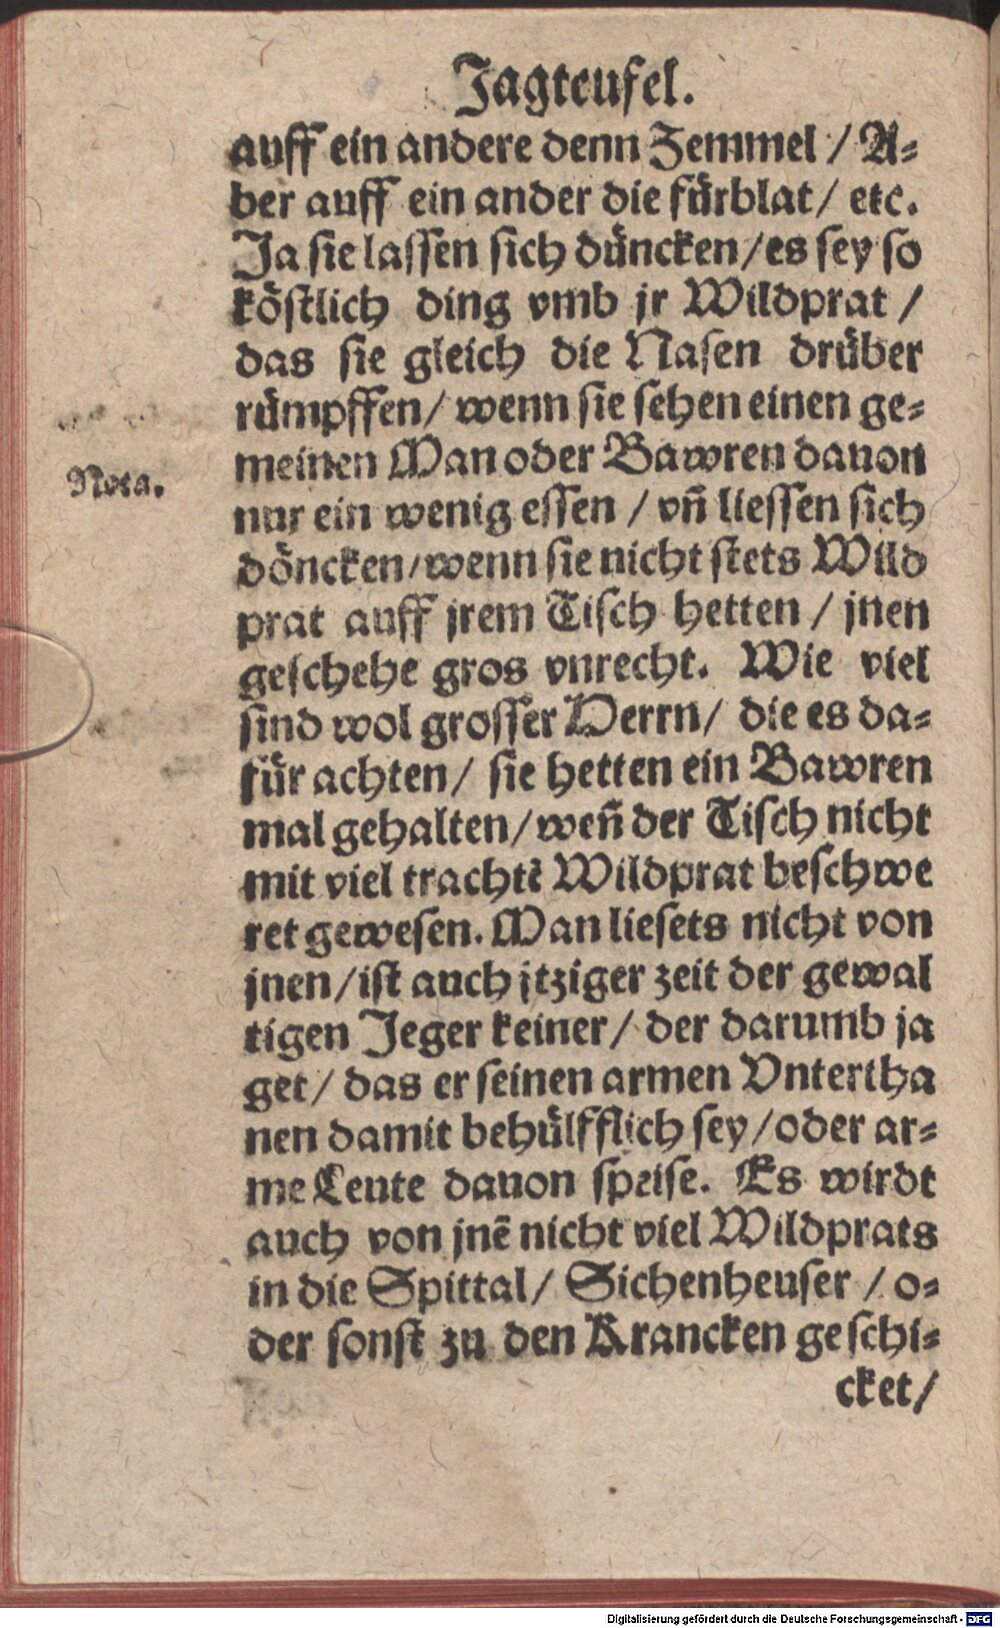 Jagteufel.
auff ein andere denn Zemmel / A⸗
ber auff ein ander die fürblat / etc.
Ja sie lassen sich düncken / es sey so
köstlich ding vmb jr Wildprat /
das sie gleich die Nasen drüber
rümpffen / wenn sie sehen einen ge⸗
meinen Man oder Bawren dauon
Nota.
nur ein wenig essen / vñ liessen sich
döncken / wenn sie nicht stets Wild
prat auff jrem Tisch hetten / jnen
geschehe gros vnrecht. Wie viel
sind wol grosser Herrn / die es da⸗
für achten / sie hetten ein Bawren
mal gehalten / weñ der Tisch nicht
mit viel trachtē Wildprat beschwe
ret gewesen. Man liesets nicht von
jnen / ist auch jtziger zeit der gewal
tigen Jeger keiner / der darumb ja
get / das er seinen armen Vntertha
nen damit behülfflich sey / oder ar⸗
me Leute dauon speise. Es wirdt
auch von jnē nicht viel Wildprats
in die Spittal / Sichenheuser / o⸗
der sonst zu den Krancken geschi⸗
cket /
Digitalisierung gefördert durch die Deutsche Forschungsgemeinschaft - DFG